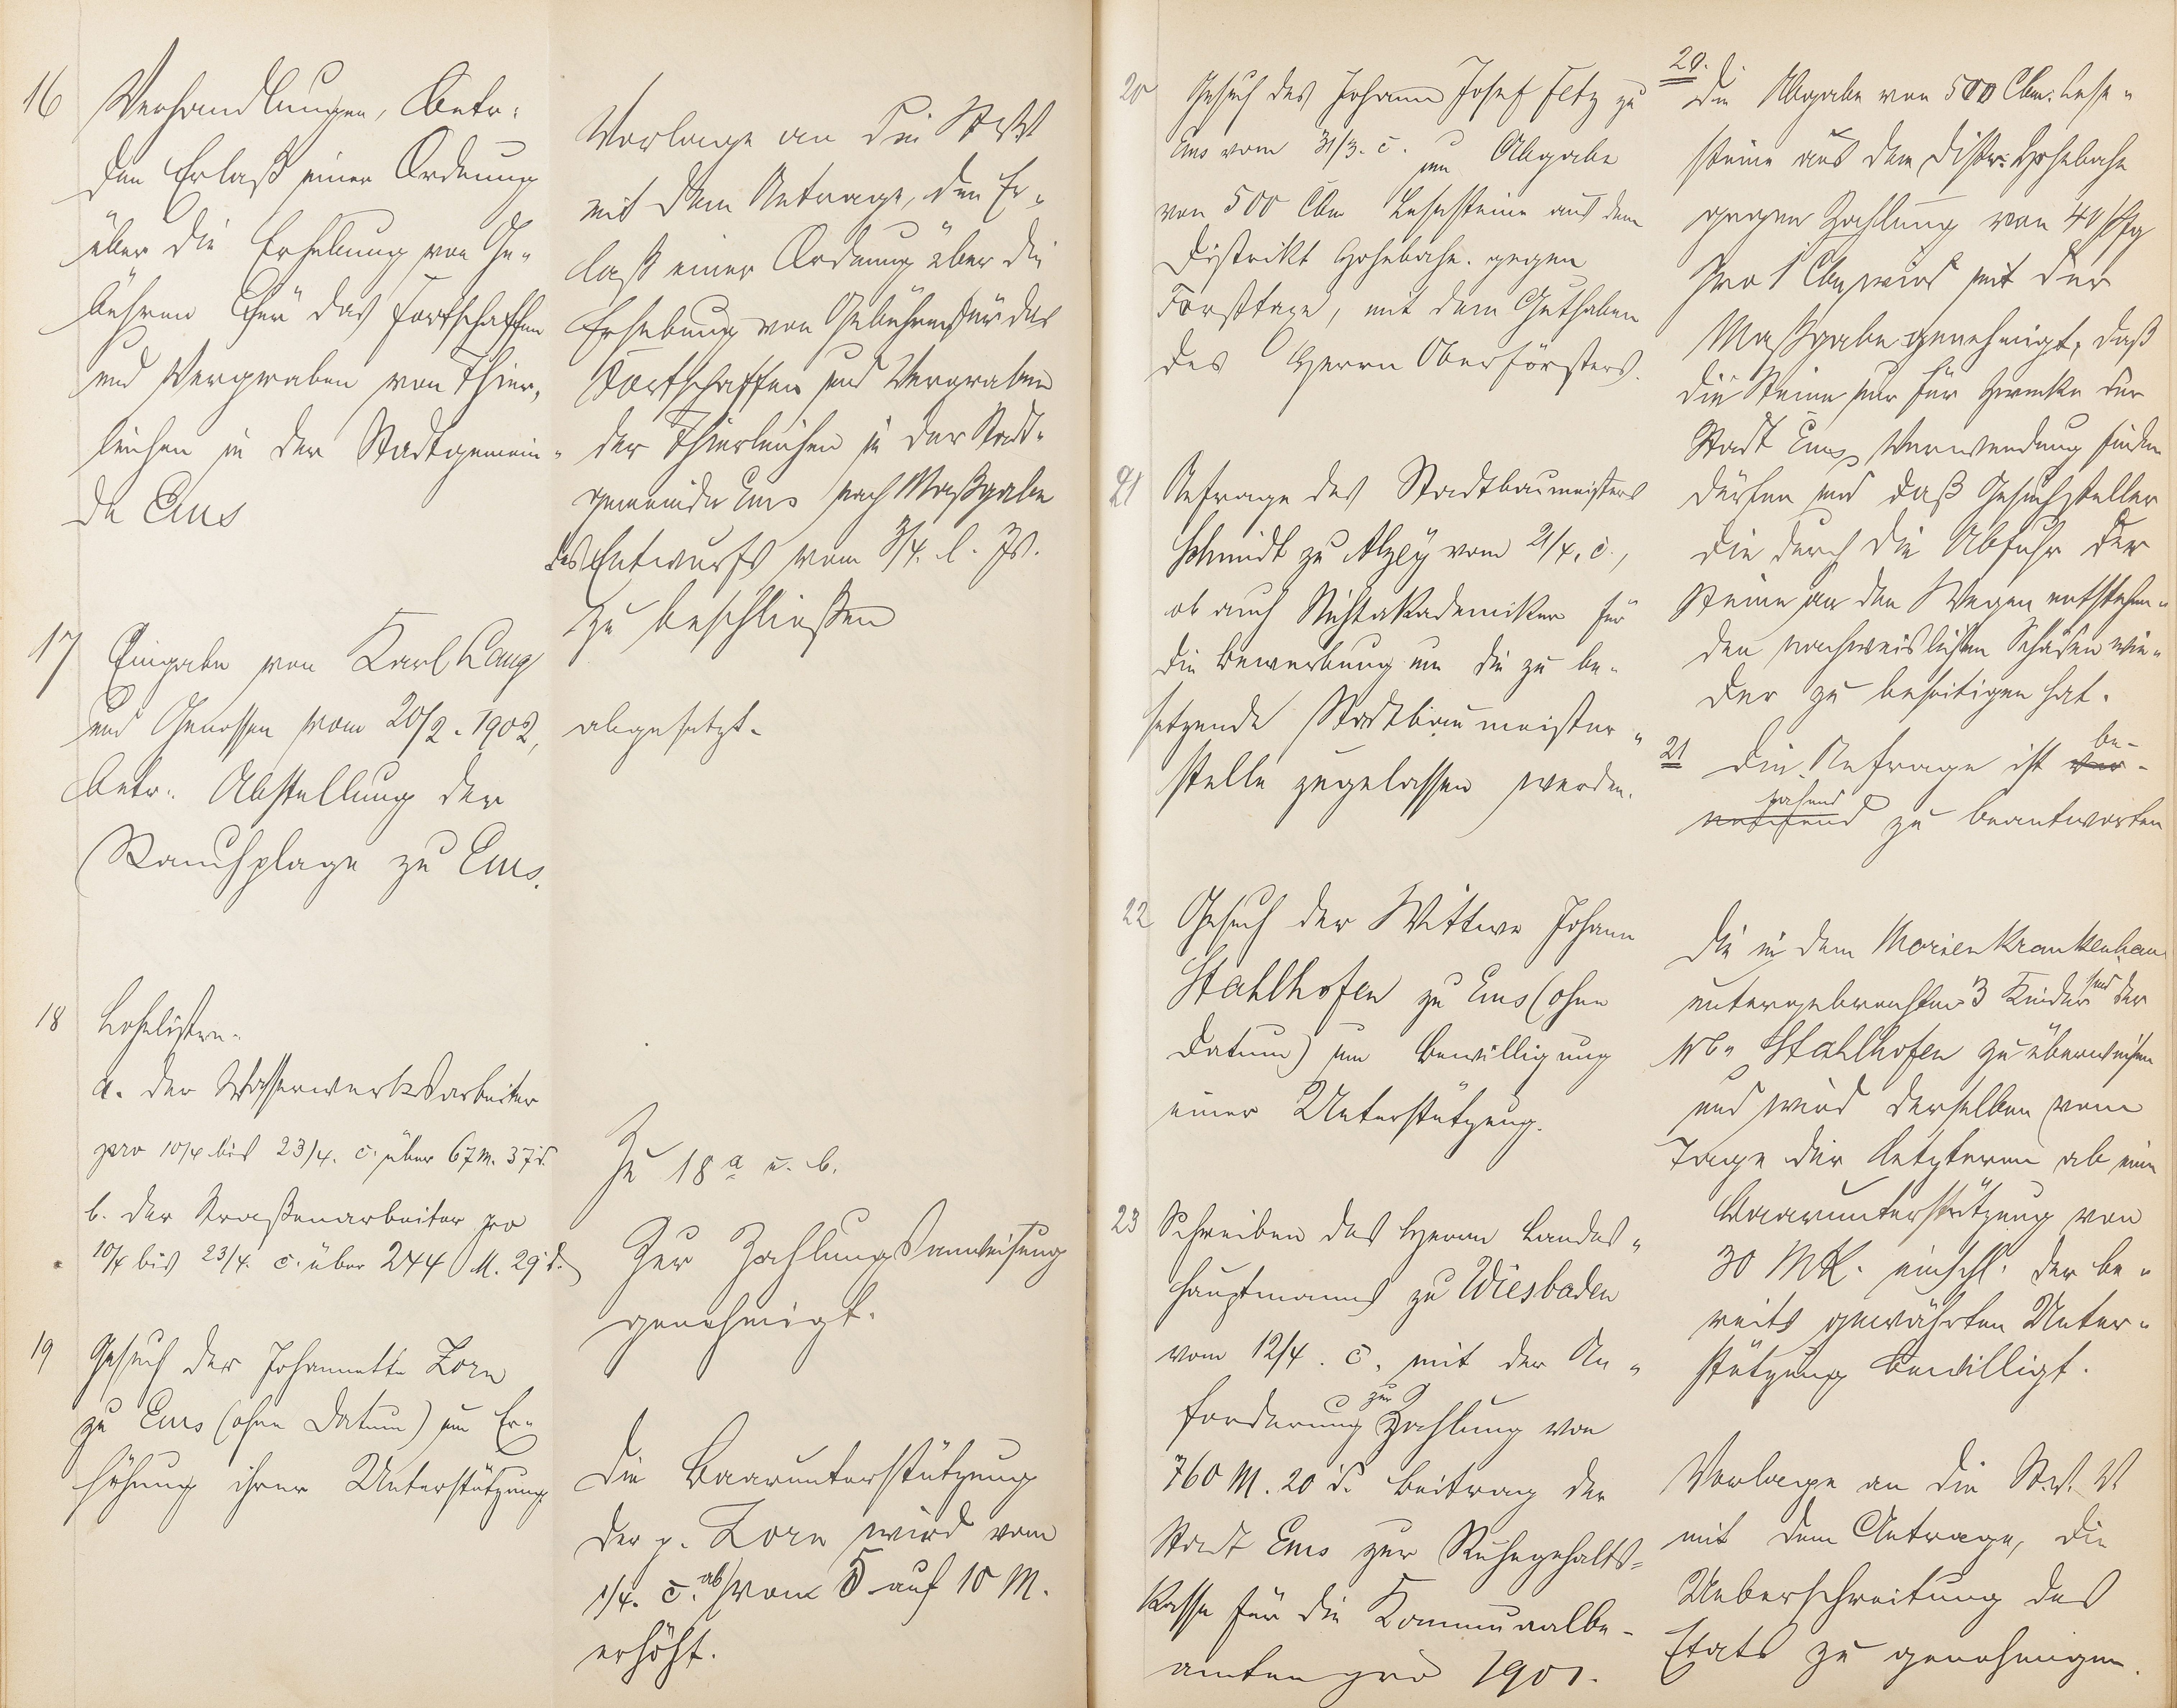 16
Verhandlungen, betr.
den Erlaß einer Ordnung
über die Erhebung von Ge-
bühren für das Fortschaffen
und Vergraben von Thier-
leichen in der Stadtgemein-
de Ems
Vorlage an die StVV
mit dem Antrage, den Er-
laß einer Ordnung über die
Erhebung von Gebühren für das
Fortschaffen und Vergraben
der Thierleichen in der Stadt-
gemeinde Ems nach Maßgabe
des Entwurfs vom 3/4. l. Js.
zu beschließen
17
Eingabe von Karl Lang
und Genossen vom 20/2. 1902,
betr. Abstellung der
Rauchplage zu Ems.
abgesetzt.
18
Lohnlisten.
a. der Wasserwerksarbeiter
pro 10/4 bis 23/4. c. über 67 M. 37 d.
b. der Straßenarbeiter pro
10/4 bis 23/4. c. über 244 M. 29 d.
Zu 18 a u. b.
Zur Zahlungsanweisung
genehmigt.
19
Gesuch der Johannette Zorn
zu Ems (ohne Datum) um Er-
höhung ihrer Unterstützung
Die Baarunterstützung
der p. Zorn wird vom
1/4. c. ab von 5 auf 10 M.
erhöht.
20
Gesuch des Johann Josef Fetz zu
Ems vom 31/3. c. um Abgabe
von 500 Cbm Lesesteine aus dem
Distrikt Hohebahn gegen
Forsttaxe, mit dem Guthaben
des Herrn Oberförsters.
20.
Die Abgabe von 500 Cbm. Lese-
steine aus dem Distr. Hohebahn
gegen Zahlung von 40 Pfg
pro 1 Cbm wird mit der
Maßgabe genehmigt, daß
die Steine nur für Zwecke der
Stadt Ems Verwendung finden
dürfen und daß Gesuchsteller
die durch die Abfuhr der
Steine an den Wegen entstehen-
den nachweislichen Schäden wie-
der zu beseitigen hat.
21
Anfrage des Stadtbaumeisters
Schmidt zu Alzey vom 2/4. c.,
ob auch Nichtakademiker für
die Bewerbung um die zu be-
setzende Stadtbaumeister-
stelle zugelassen werden.
21
Die Anfrage ist ver- be-
neinend jahend zu beantworten
22
Gesuch der Wittwe Johann
Stahlhofen zu Ems (ohne
Datum) um Bewilligung
einer Unterstützung.
Die in dem Marienkrankenhau
untergebrachten 3 Kinder sind der
Wb. Stahlhofen zu überweisen
und wird derselben vom
Tage der letzteren ab eine
Baarunterstützung von
30 MK. einschl. der be-
reits gewährten Unter-
stützung bewilligt.
23
Schreiben des Herrn Landes-
hauptmanns zu Wiesbaden
vom 12/4. c. mit der An-
forderung zur Zahlung von
760 M. 20 d. Beitrag der
Stadt Ems zur Ruhegehalts-
Kasse für die Kommunalbe-
amten pro 1901.
Vorlage an die St. V. V.
mit dem Antrage, die
Ueberschreitung des
Etats zu genehmigen.